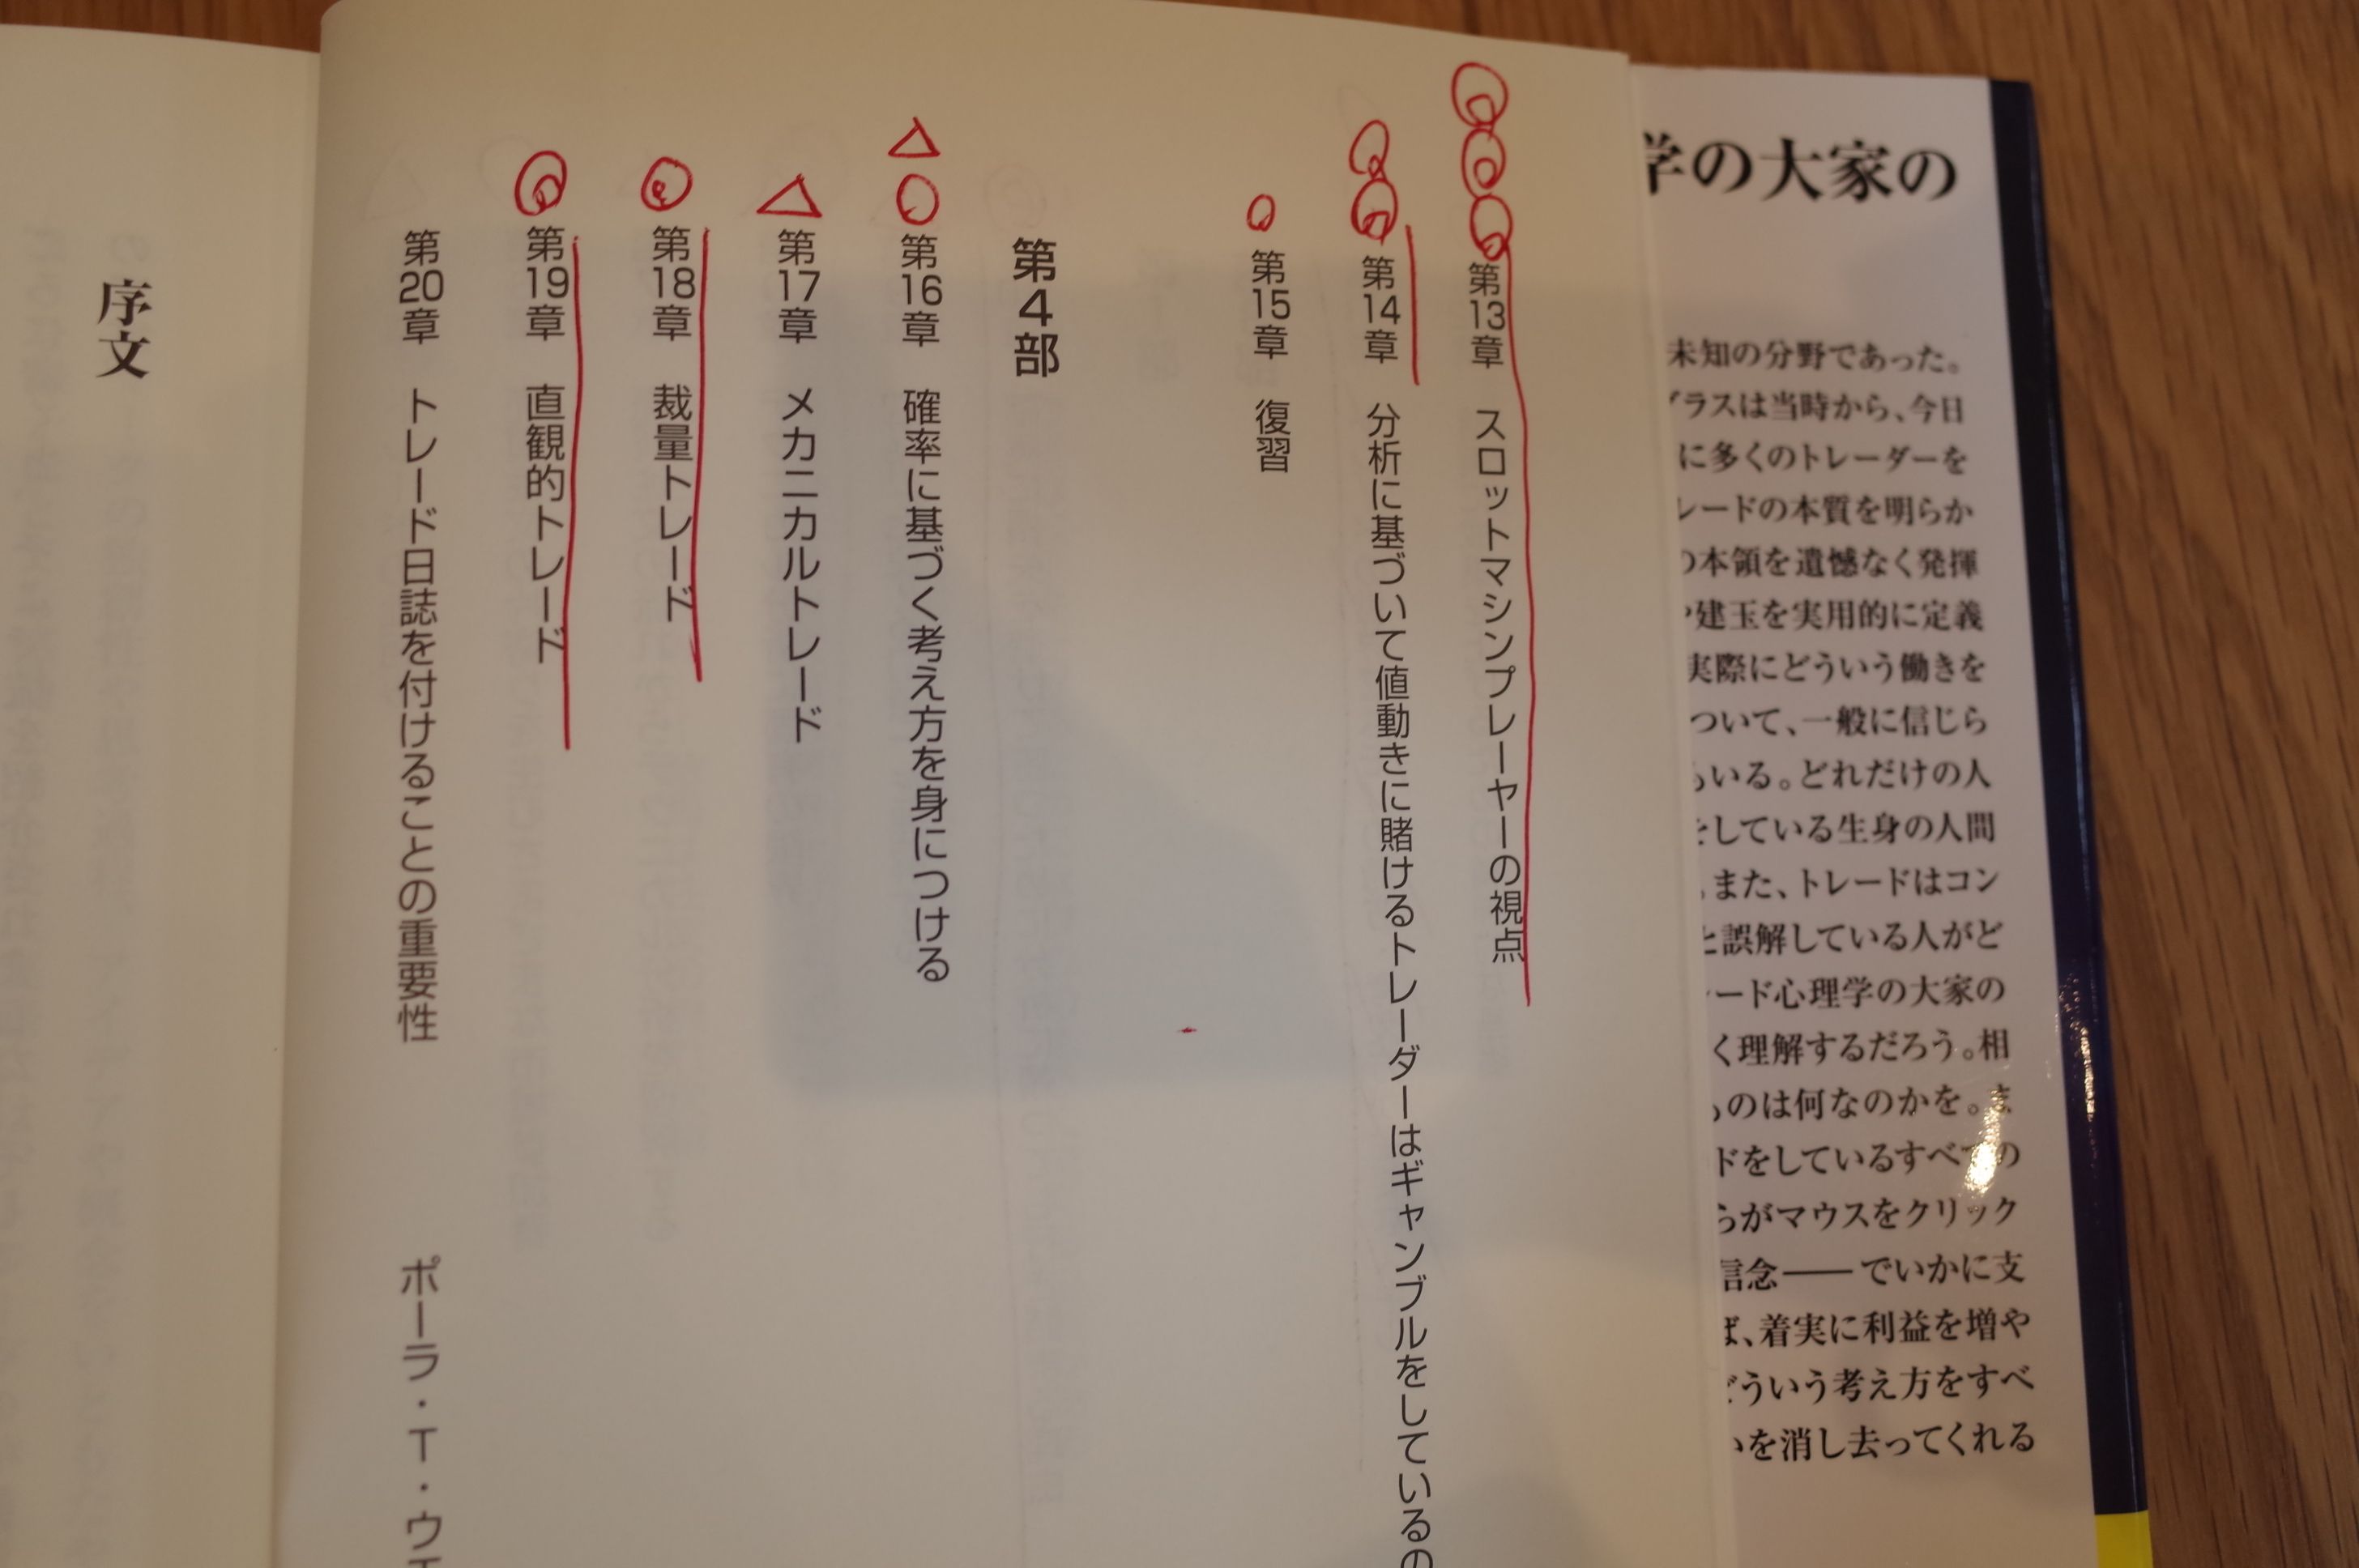 学の大家の
未知の分野であった。
ラスは当時から、今日
に多くのトレーダーを
レードの本質を明らか
の本領を遺憾なく発揮
建玉を実用的に定義
実際にどういう働きを
ついて、一般に信じら
いる。どれだけの人
をしている生身の人間
また、トレードはコン
と誤解している人がど
ード心理学の大家の
く理解するだろう。相
のは何なのかを。ま
ドをしているすべての
らがマウスをクリック
信念――でいかに支
ば、着実に利益を増や
どういう考え方をすべ
いを消し去ってくれる
第13章 スロットマシンプレーヤーの視点
第14章 分析に基づいて値動きに賭けるトレーダーはギャンブルをしているの
第15章 復習
第4部
第16章 確率に基づく考え方を身につける
第17章 メカニカルトレード
第18章 裁量トレード
第19章 直観的トレード
第20章 トレード日誌を付けることの重要性 ポーラ・T・ウエ
序文